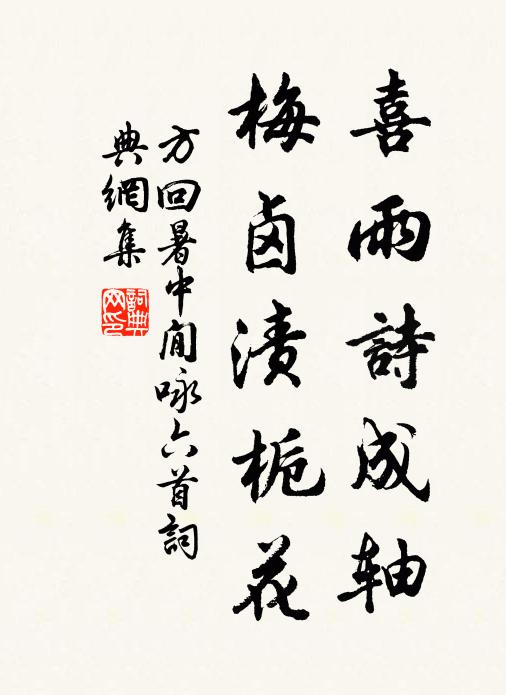 喜雨詩成軸
梅鹵漬栀花
方回暑中閒咏六首詞
典網集
詞典網印